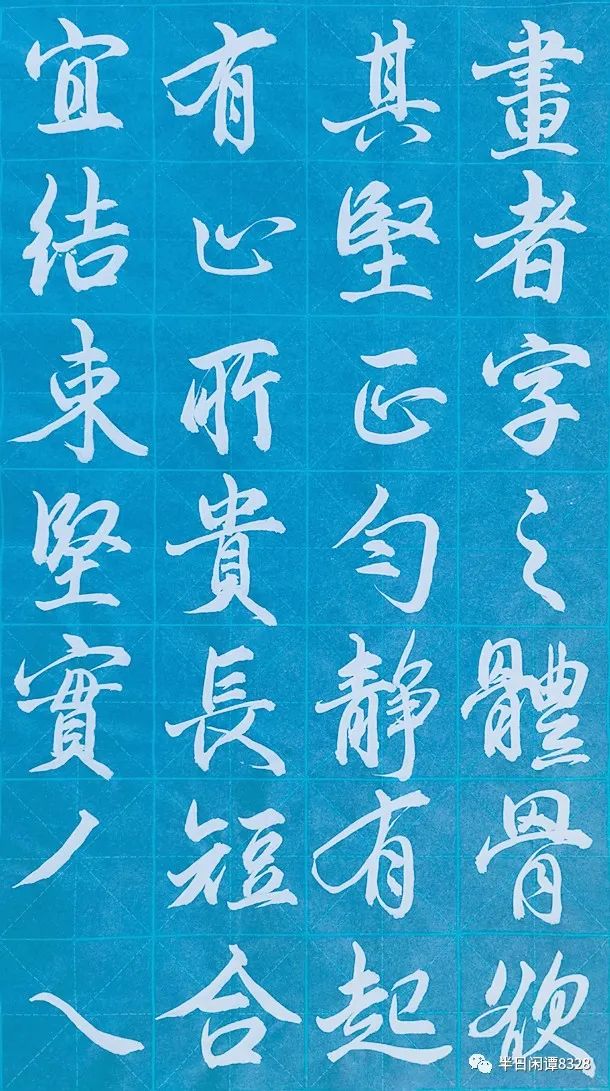 畫者字之體骨欲
其堅正勻静有起
有止所貴長短合
宜結束堅實丿乀
半日闲谭8328